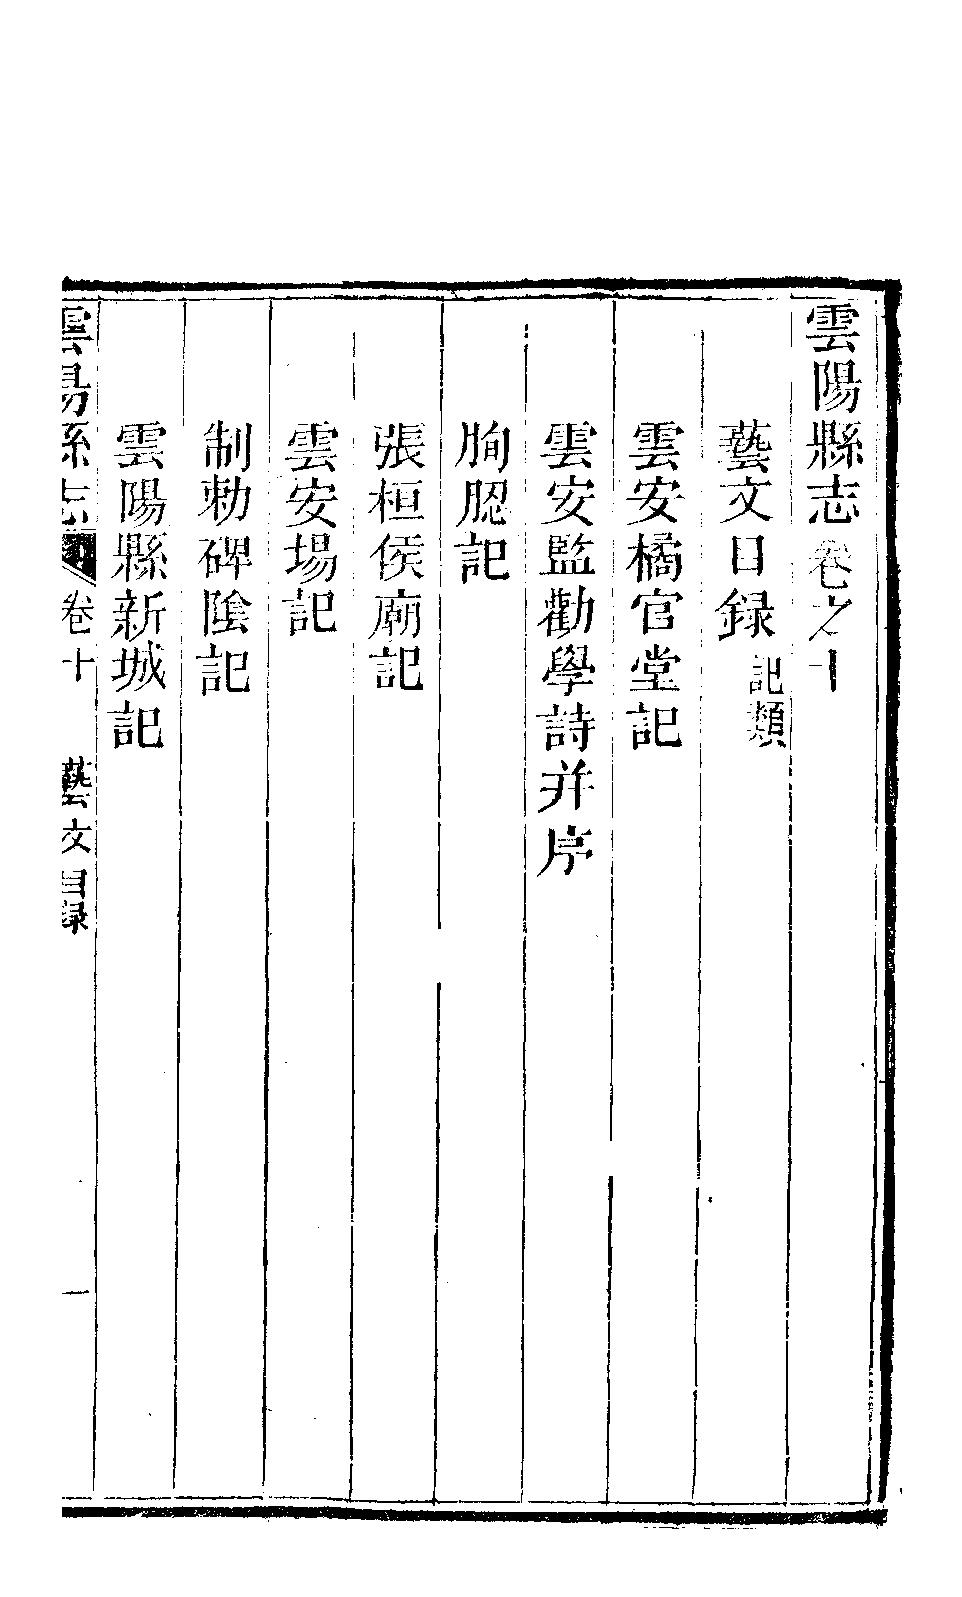 雲陽縣志卷之十
藝文目録 記類
雲安橘官堂記
雲安監勸學詩并序
朐䏰記
張桓侯廟記
雲安場記
制勅碑陰記
雲陽縣新城記
雲陽縣志 卷十 藝文目録 一